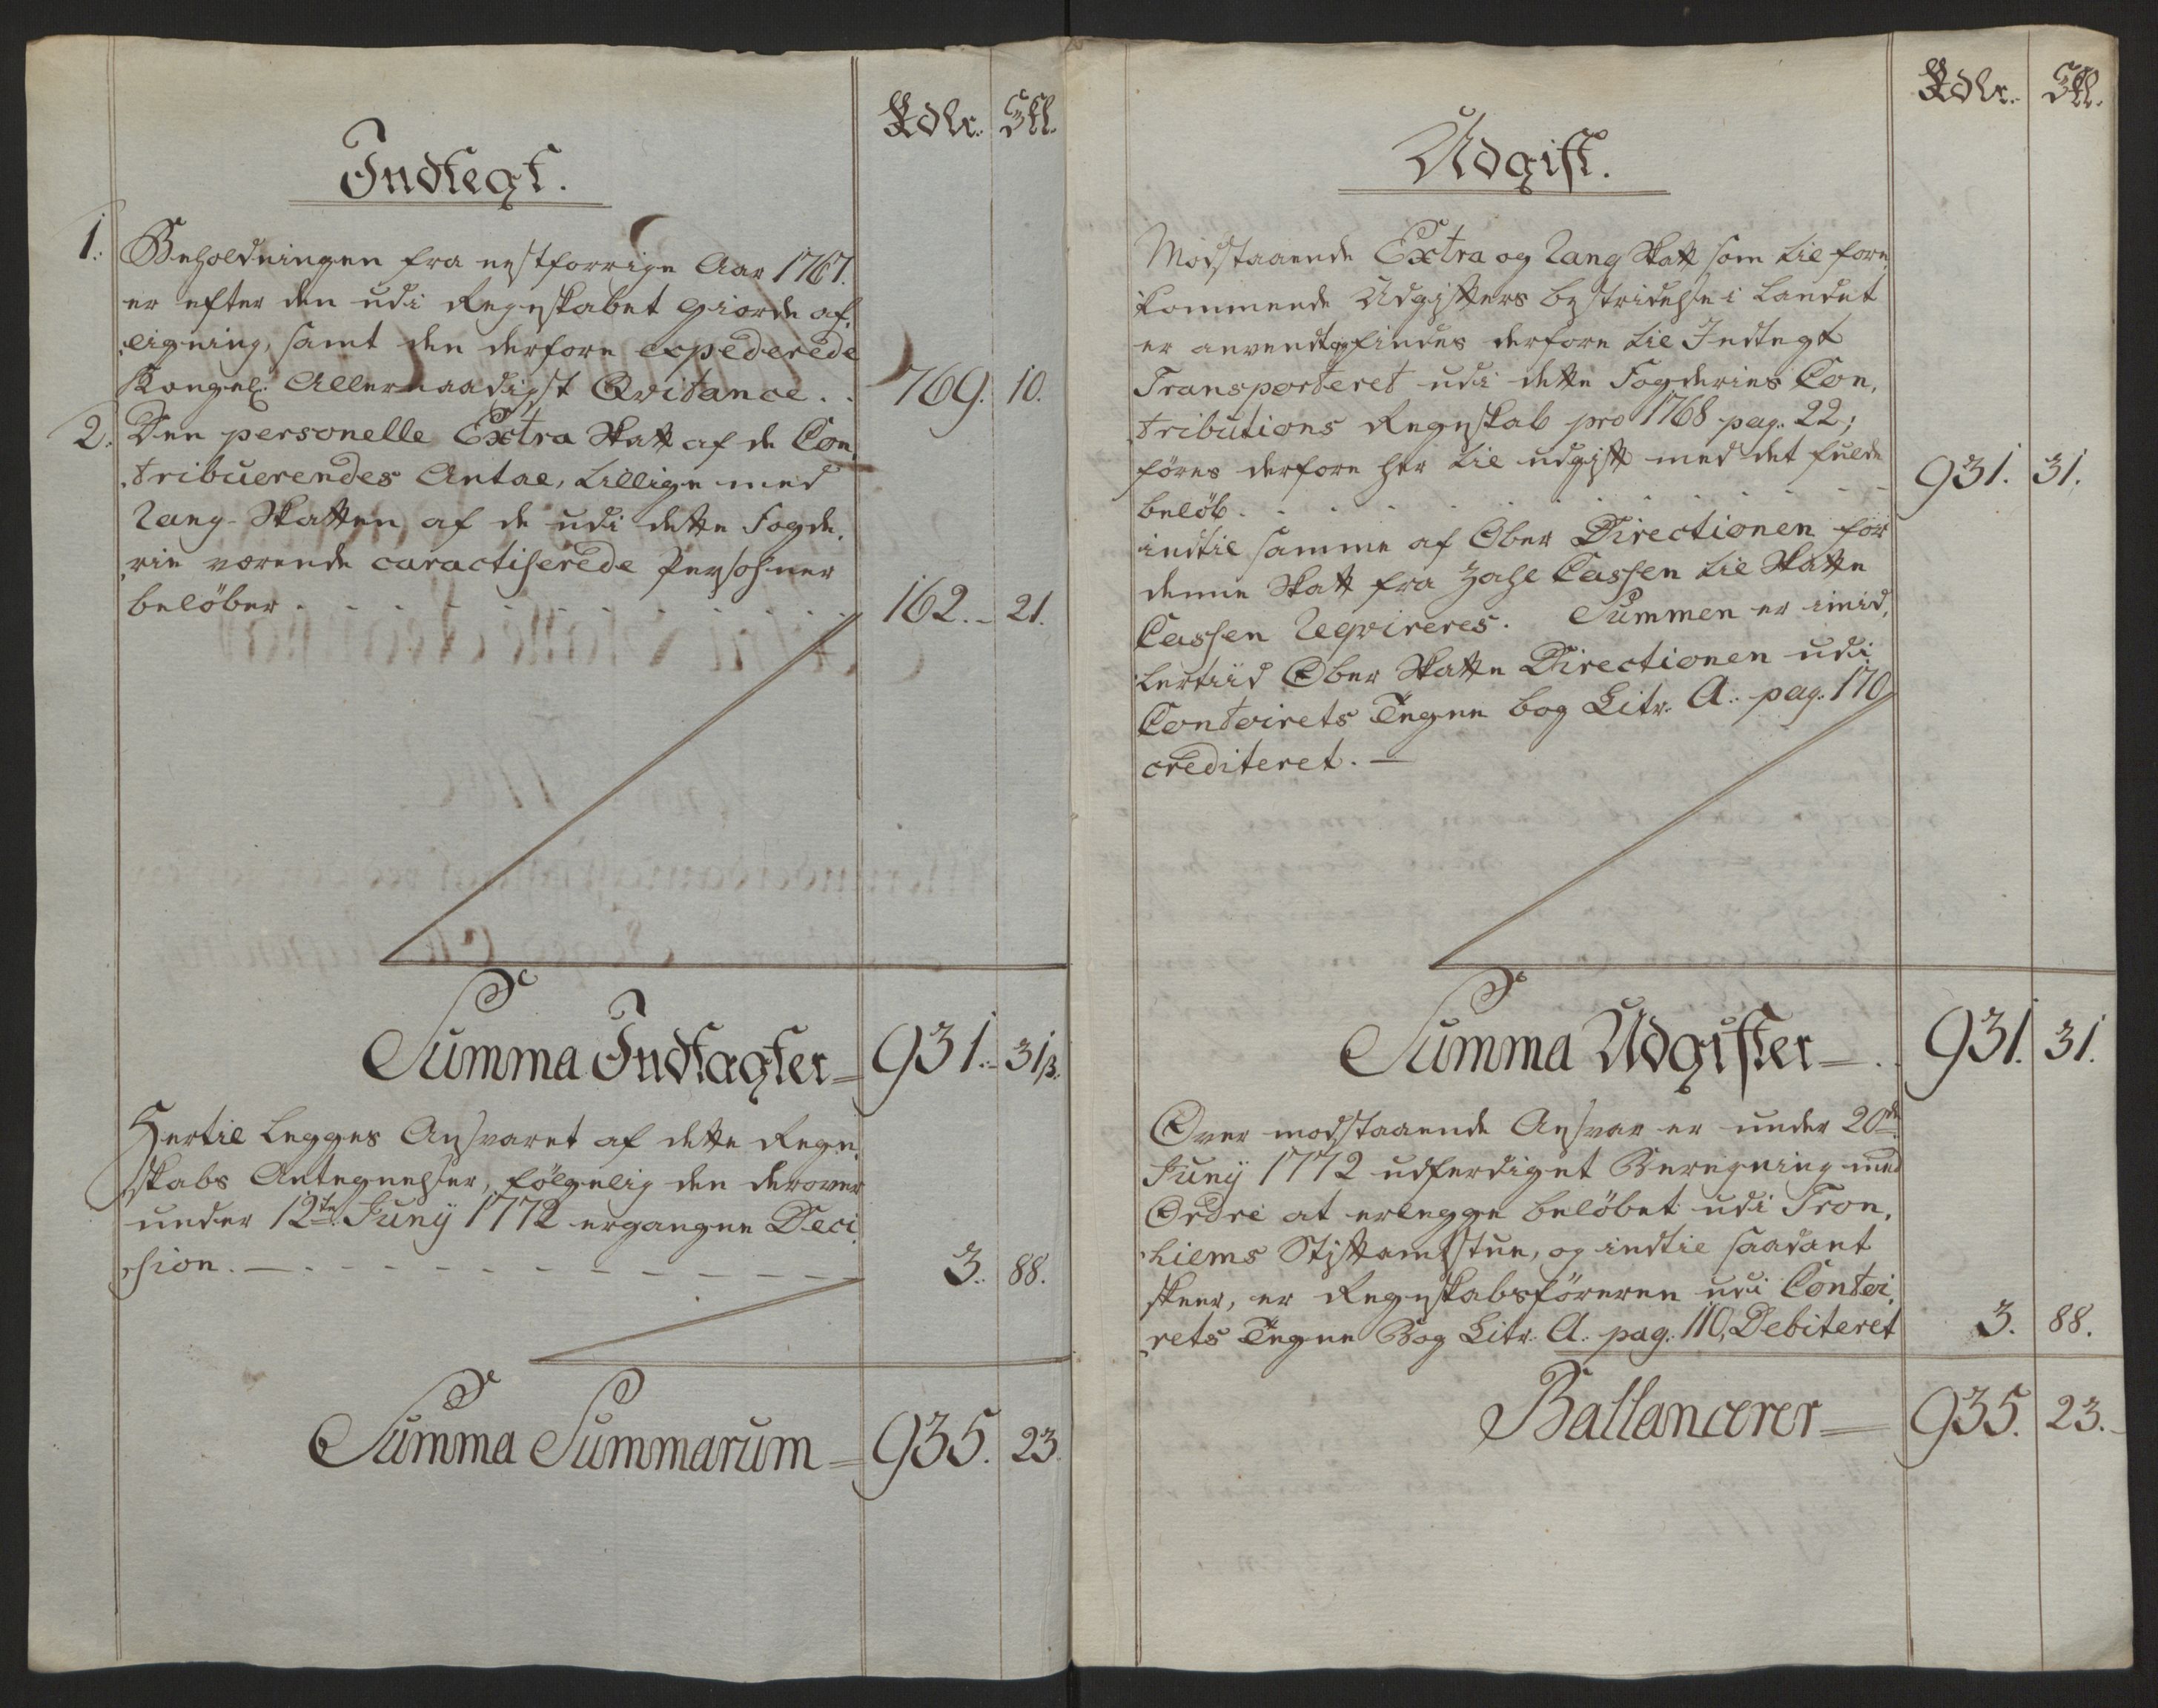 Rdlr. Skl.
Indtegt.
1. Beholdningen fra nestforrige Aar 1767.
er efter den udi Regnskabet giorde af,
ligning, samt den derfore expederede
Kongel: Allernaadigst Qvitance . . 769. 10.
2. Den personelle Extra Skatt af de Con,
tribuerendes Antal, tillige med
Rang-Skatten af de udi dette Fogde,
rie værende caractiserede Persohner
belöber . . . . . . . . 162. 21.
Summa Indtægter = 931. 31 ß.
Hertil legges Ansvaret af dette Regn,
skabs Antegnelser, fölgelig den derover
under 12te Juny 1772 ergangne Deci,
sion. — . . . . . . . 3. 88.
Summa Summarum = 935. 23.
Rdlr. Skl.
Udgift.
Modstaaende Extra og Rang Skatt som til fore,
kommende Udgifters bestridelse i Landet
er anvendt og findes derfore til Indtegt
Transporteret udi dette Fogderies Con,
tributions Regnskab pro 1768 pag. 22;
föres derfore her til udgift med det fulde
belöb . . . . . . . . 931. 31.
indtil samme af Ober Directionen for
denne Skatt fra Zahl Cassen til Skatte
Cassen Reqvireres. Summen er imid,
lertiid Ober Skatte Directionen udi
Contoirets Tegne bog Litr. A. pag. 170
crediteret. —
Summa Udgifter = . 931. 31.
Over modstaaende Ansvar er under 20de
Juny 1772 udferdiget Beregning med
Ordre at erlegge belöbet udi Tron,
hiems Stiftamtstue, og indtil saadant
skeer, er Regnskabsföreren udi Contoi,
rets Tegne Bog Litr. A. pag. 110, Debiteret 3. 88.
Ballancerer = 935. 23.